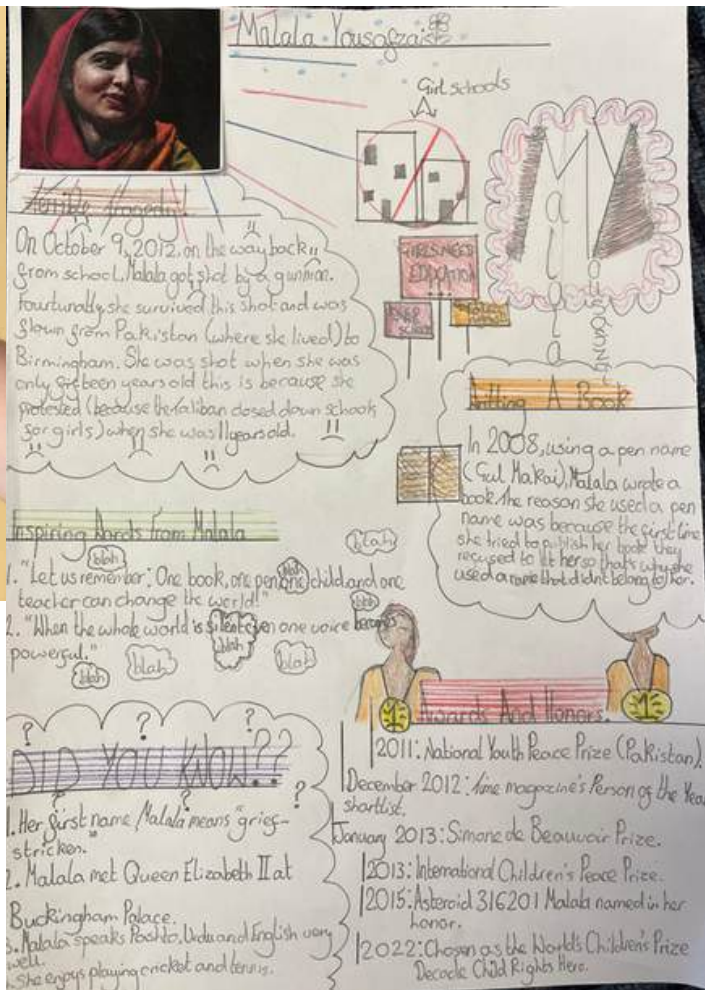 Malala Yousafzai
Girl schools
Terrible tragedy!
On October 9, 2012, on the way back
from school, Malala got shot by a gunman.
Fourtunatly she survived this shot and was
flown from Pakistan (where she lived) to
Birmingham. She was shot when she was
only fifteen years old this is because she
protested (because the taliban closed down schools
for girls) when she was 11 years old.
GIRLS NEED
EDUCATION
Malala
A Book
In 2008, using a pen name
(Gul Makai), Malala wrote a
book. The reason she used a pen
name was because the first time
she tried to publish her book they
refused to let her so that's why she
used a name that didn't belong to her.
Inspiring Words from Malala
1. "Let us remember: One book, one pen, one child, and one
teacher can change the world!"
2. "When the whole world is silent even one voice becomes
powerful."
blah
blah
blah
blah
blah
blah
blah
blah
DID YOU KNOW??
1. Her first name Malala means "grief-
stricken."
2. Malala met Queen Elizabeth II at
Buckingham Palace.
3. Malala speaks Pashto, Urdu and English very
well.
She enjoys playing cricket and tennis.
1
Awards And Honors.
1
2011: National Youth Peace Prize (Pakistan).
December 2012: Time magazine's Person of the Year
shortlist.
January 2013: Simone de Beauvoir Prize.
2013: International Children's Peace Prize.
2015: Asteroid 316201 Malala named in her
honor.
2022: Chosen as the World's Children's Prize
Decade Child Rights Hero.